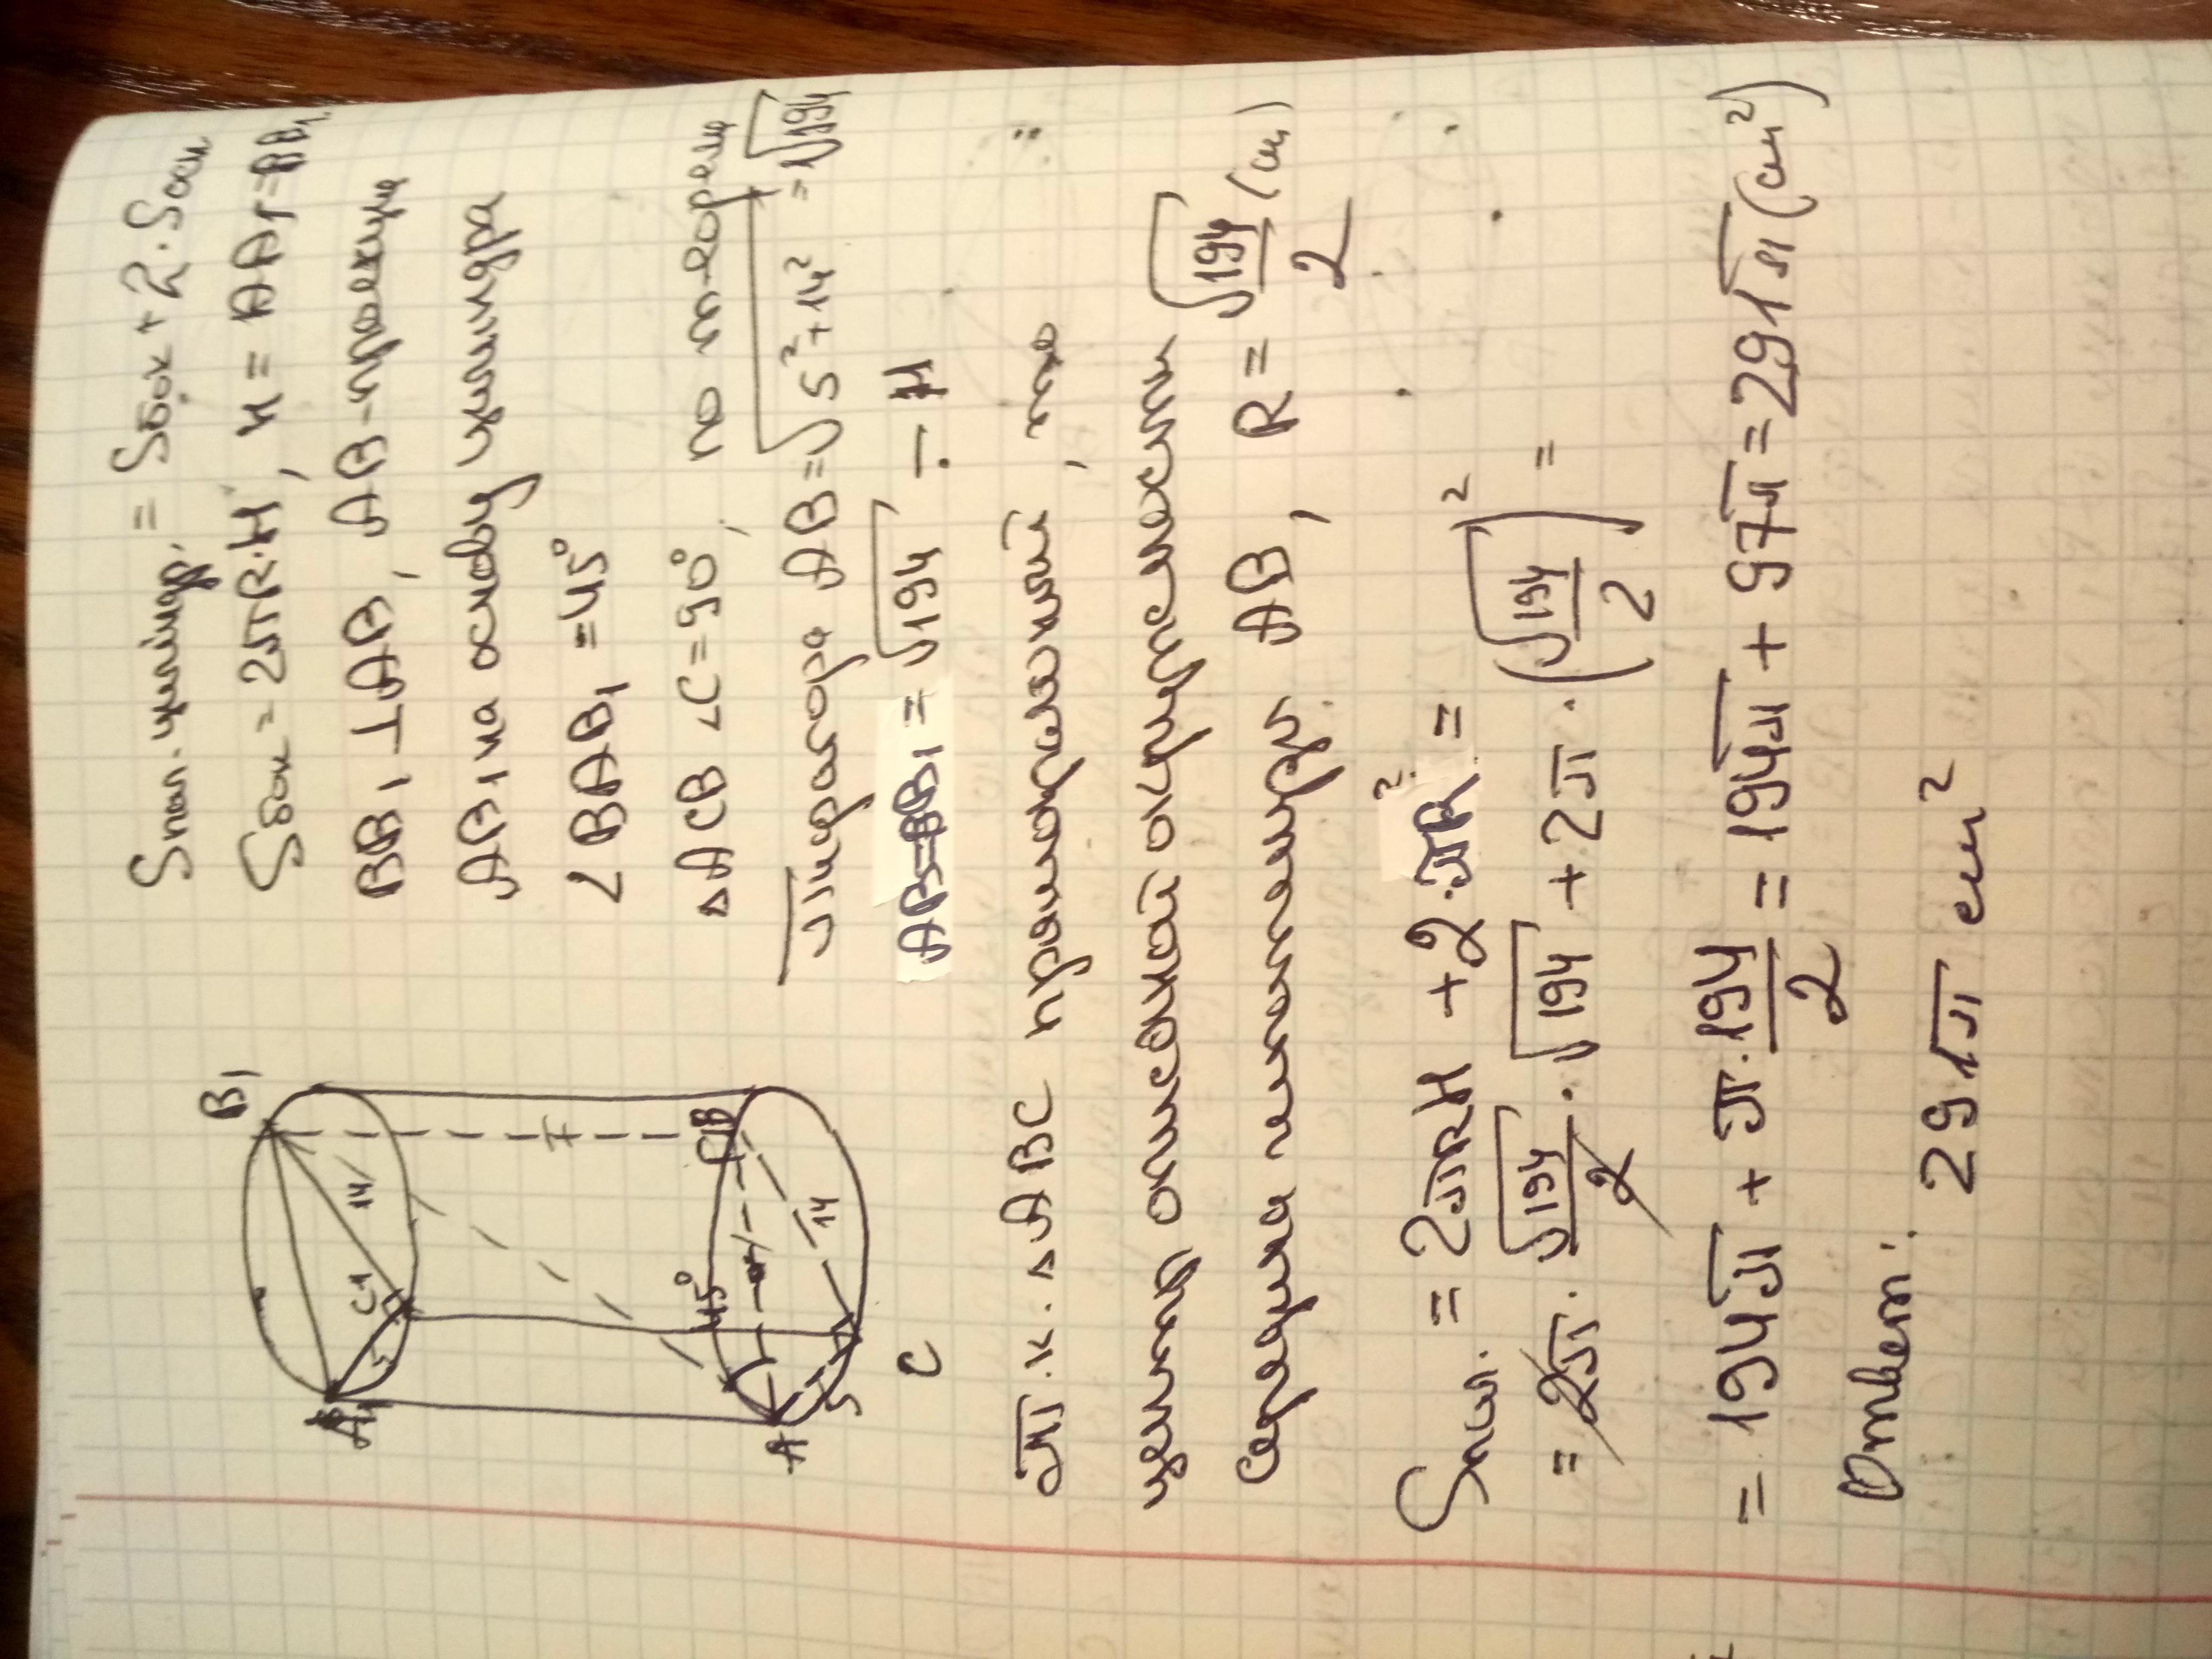 Sпол. цилиндр. = Sбок + 2·Sосн
Sбок = 2πR·H, H = AA₁=BB₁
BB₁ ⊥ AB, AB - проекция
AB₁ на основу цилиндра
∠BAB₁ = 45°
△ACB ∠C = 90°, по теореме
Пифагора AB = √5²+14² = √194
AB=BB₁ = √194 - H
B₁
14
A₁
5
C₁
H
B
45°
14
A
5
C
Т.к. △ABC прямоугольный, то
центр описанной окружности
Середина гипотенузы AB, R = √194/2 (см)
Sпол. = 2πRH + 2·πR² =
= 2π · √194/2 · √194 + 2π · (√194/2)² =
= 194π + π · 194/2 = 194π + 97π = 291π (см²)
Ответ: 291π см²